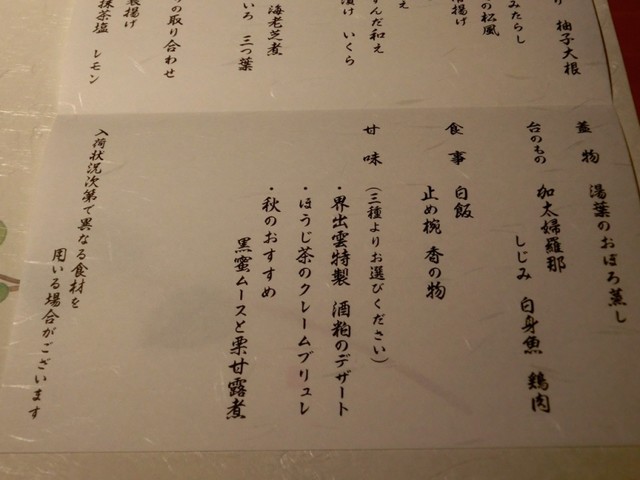 柚子大根
みたらし
の松風
揚げ
え
ずんだ和え
漬け　いくら
海老芝煮
いろ　三つ葉
の取り合わせ
揚げ
抹茶塩　レモン
蓋　物　湯葉のおぼろ蒸し
台のもの　加太婦羅那
しじみ　白身魚　鶏肉
食　事　白飯
止め椀　香の物
甘　味　（三種よりお選びください）
・界出雲特製　酒粕のデザート
・ほうじ茶のクレームブリュレ
・秋のおすすめ
黒蜜ムースと栗甘露煮
入荷状況次第で異なる食材を
用いる場合がございます